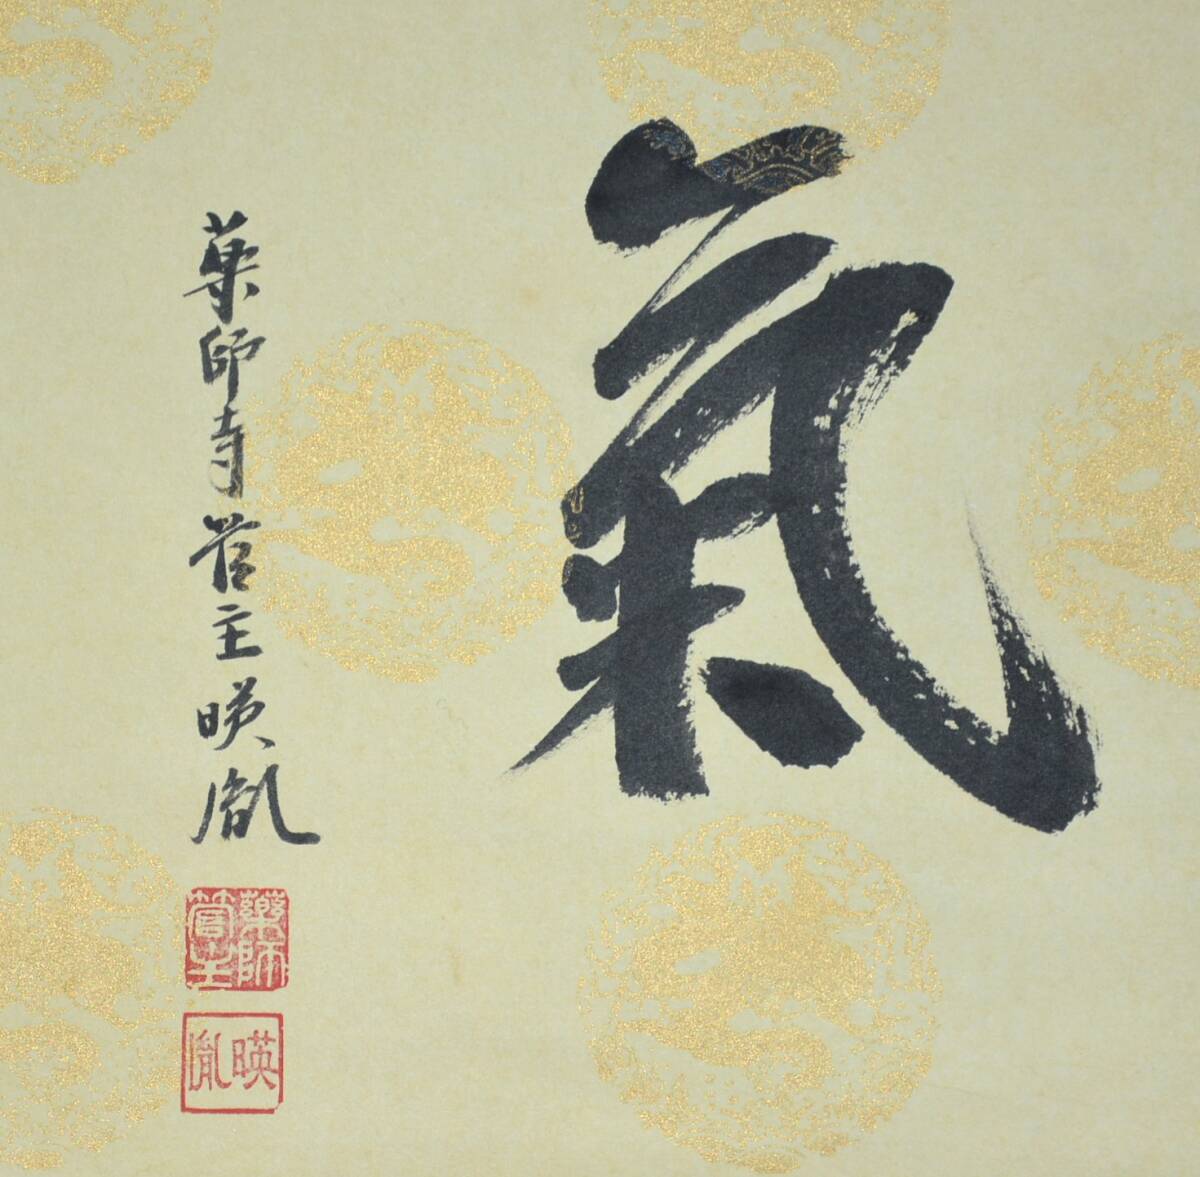 氣
薬師寺管主暎胤
薬師
管主
暎胤